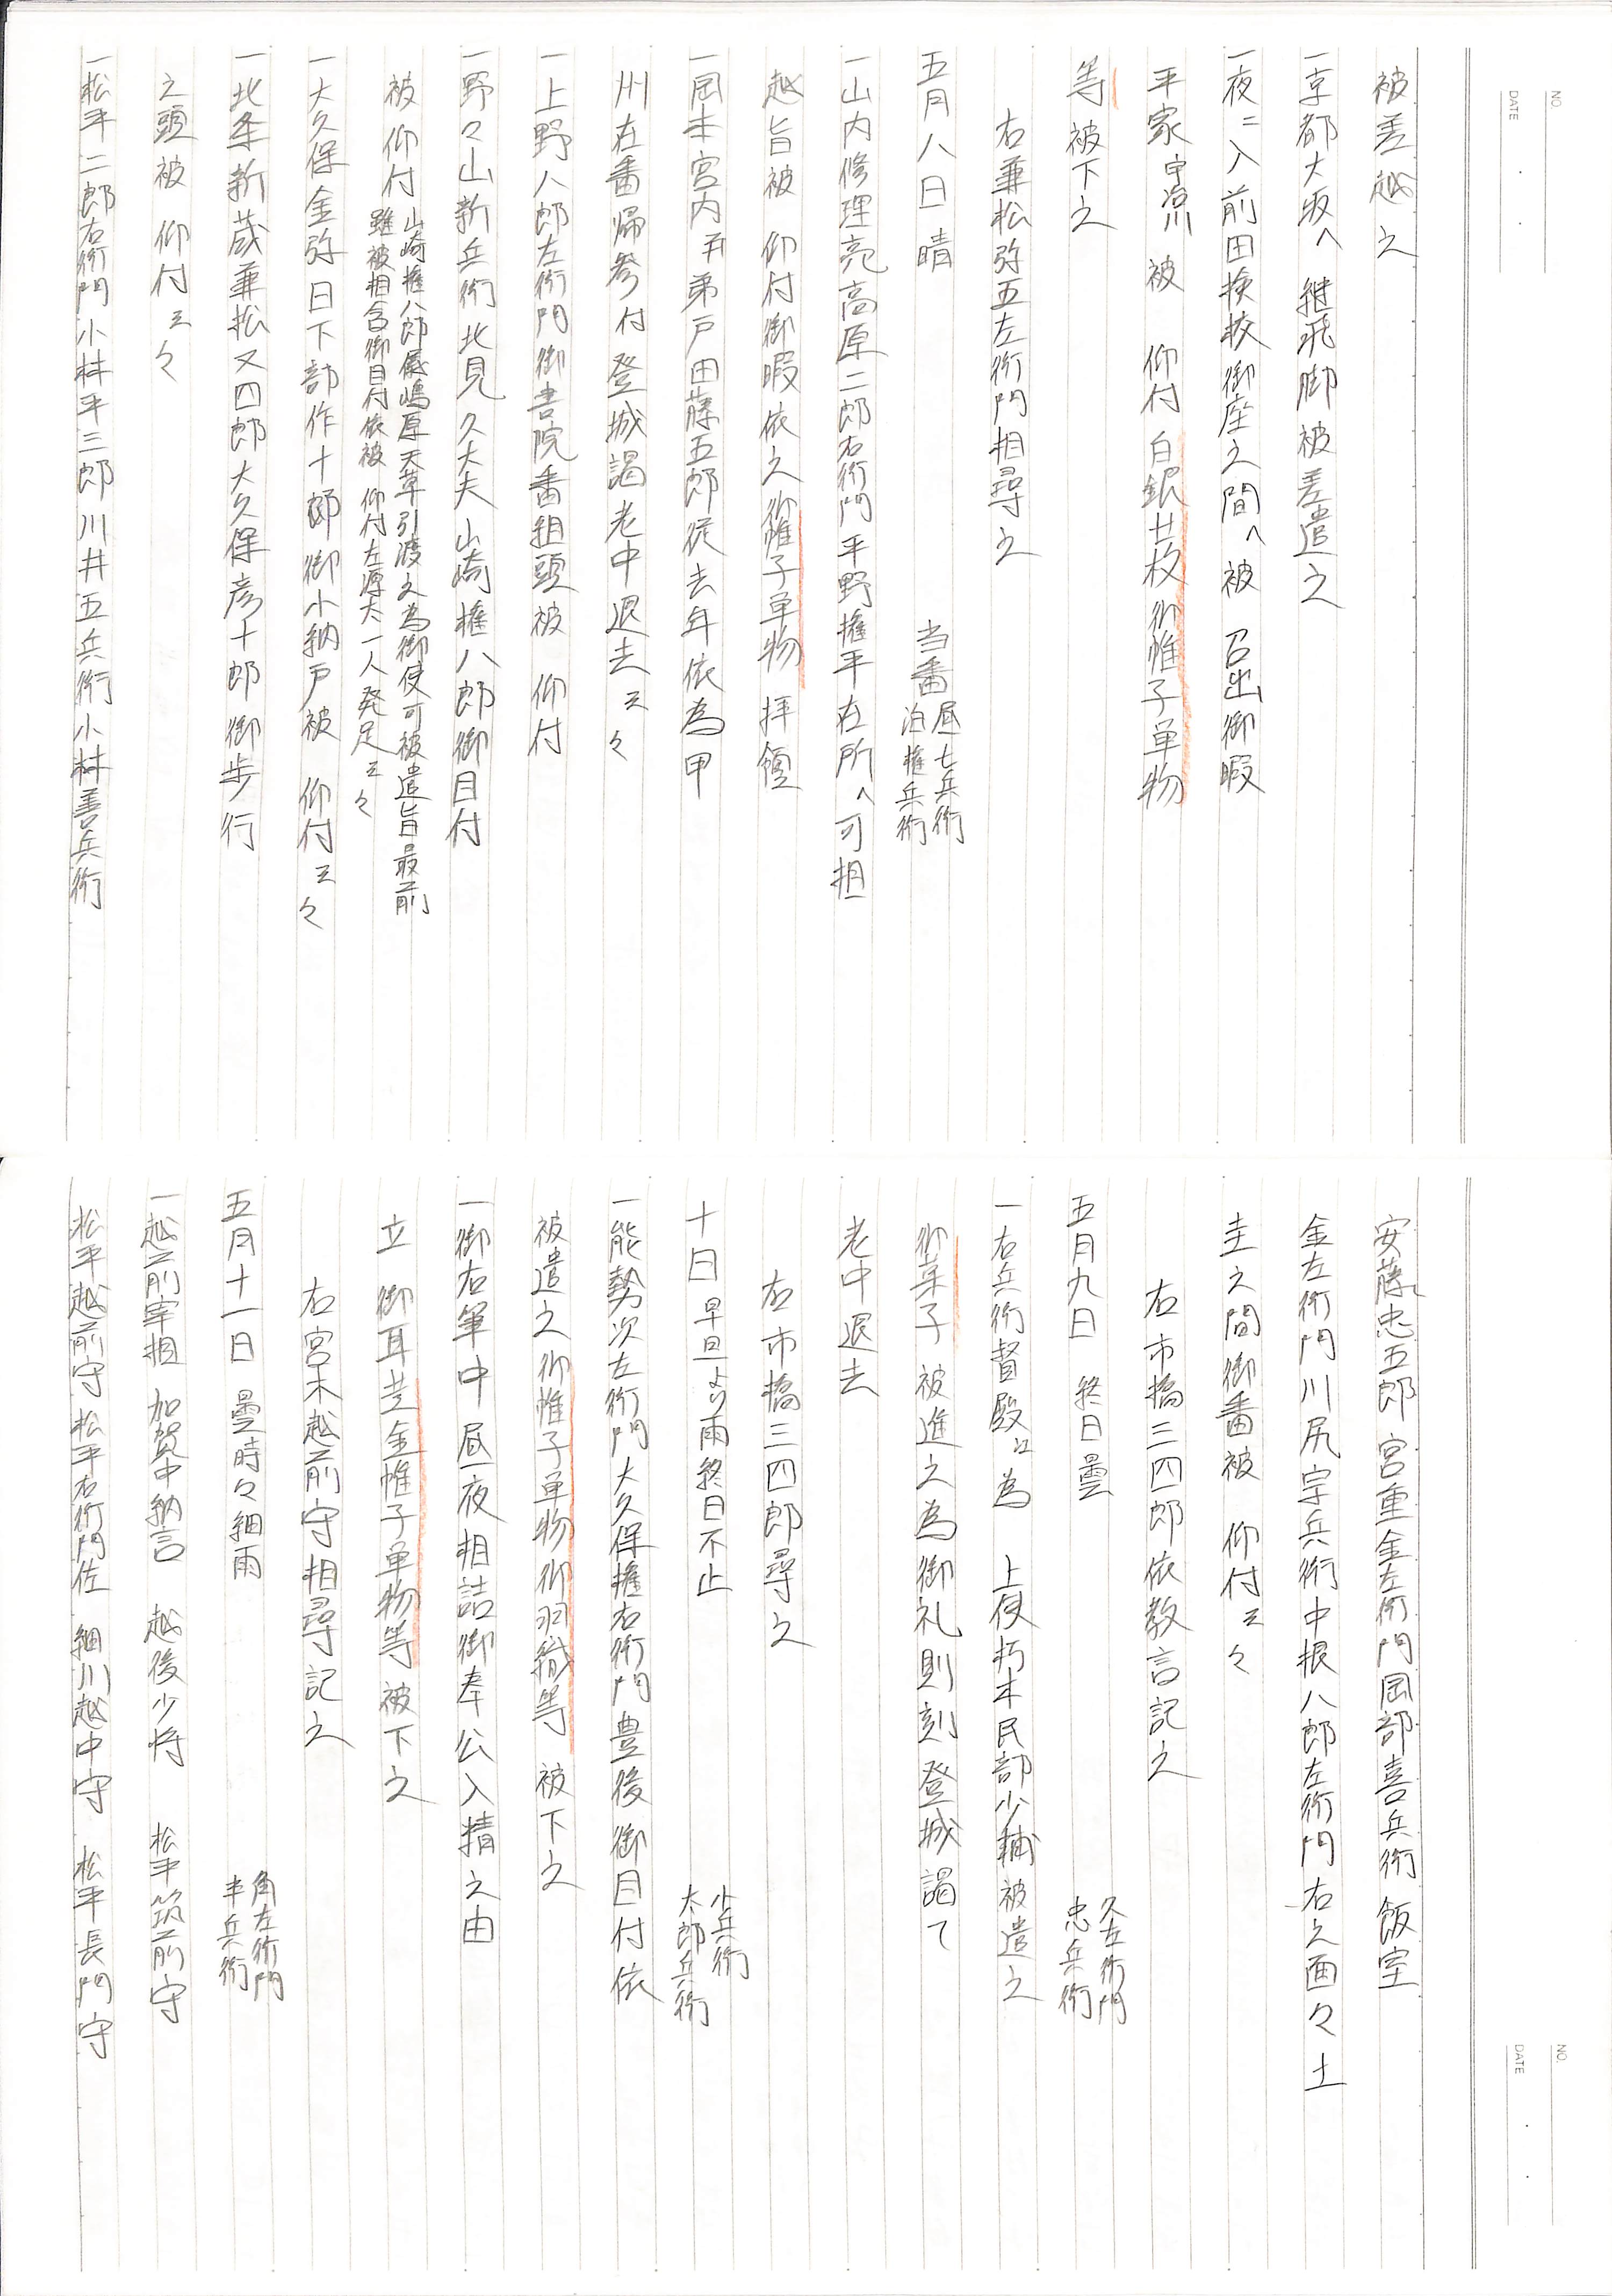 NO.
DATE
被差越之
一京都大坂へ 継飛脚被差遣之
一夜ニ入前田検校御座之間へ被 召出御暇
平家宇治川 被 仰付 白銀廿枚 御帷子単物
等被下之
右兼松弥五左衛門相尋之
五月八日 晴 当番 昼七兵衛 泊権兵衛
一山内修理亮高原二郎右衛門平野権平在所へ可相
越旨被 仰付御暇依之御帷子単物 拝領
一岡本宮内并弟戸田藤五郎従去年依為甲
州在番帰参付登城謁老中退去云々
一上野八郎左衛門御書院番組頭被 仰付
一野々山新兵衛北見久大夫山崎権八郎御目付
被 仰付 山崎権八郎儀嶋原天草引渡之為御使可被遣旨最前
雖被相含御目付依被 仰付左源太一人発足云々
一大久保金弥日下部作十郎御小納戸被 仰付云々
一北条新蔵兼松又四郎大久保彦十郎御歩行
之頭被 仰付云々
一松平二郎右衛門小林平三郎川井五兵衛小林善兵衛
NO.
DATE
安藤忠五郎宮重金左衛門岡部喜兵衛飯室
金左衛門川尻宗兵衛中根八郎左衛門右之面々土
圭之間御番被 仰付云々
右市橋三四郎依教言記之
五月九日 終日曇 久左衛門 忠兵衛
一右兵衛督殿江為 上使朽木民部少輔被遣之
御菓子被進之為御礼則刻登城謁て
老中退去
右市橋三四郎尋之
十日 早旦より雨終日不止 小兵衛 太郎兵衛
一能勢次左衛門大久保権右衛門豊後御目付依
被遣之御帷子単物御羽織等 被下之
一御右筆中昼夜相詰御奉公入精之由
立 御耳 黄金帷子単物等 被下之
右宮木越前守相尋記之
五月十一日 曇時々細雨 角左衛門 半兵衛
一越前宰相 加賀中納言 越後少将 松平筑前守
松平越前守 松平右衛門佐 細川越中守 松平長門守